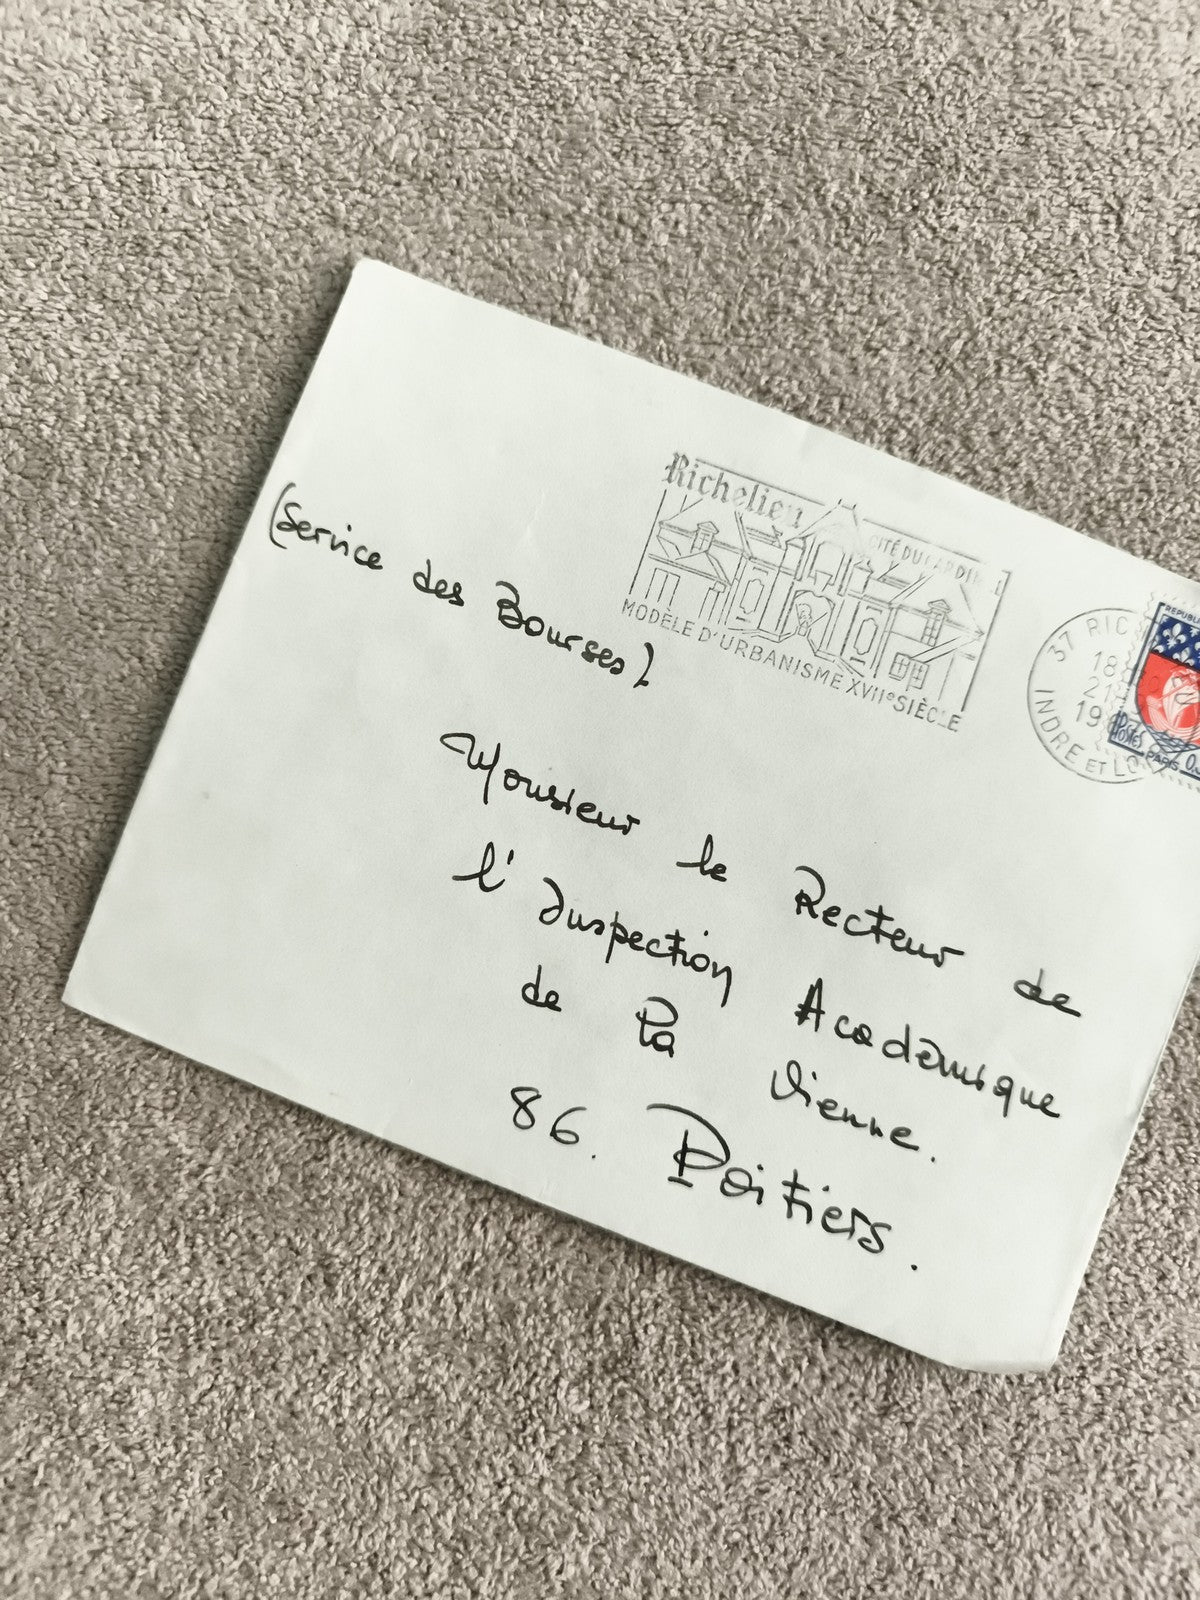 Richelieu
CITÉ DU CARDIN
MODÈLE D'URBANISME XVIIe SIÈCLE
37 RIC
18
21
19
INDRE ET LO
REPUBLI
POSTES
PARIS
(Service des Bourses)
Monsieur le Recteur de
l'Inspection Académique
de la Vienne.
86. Poitiers.